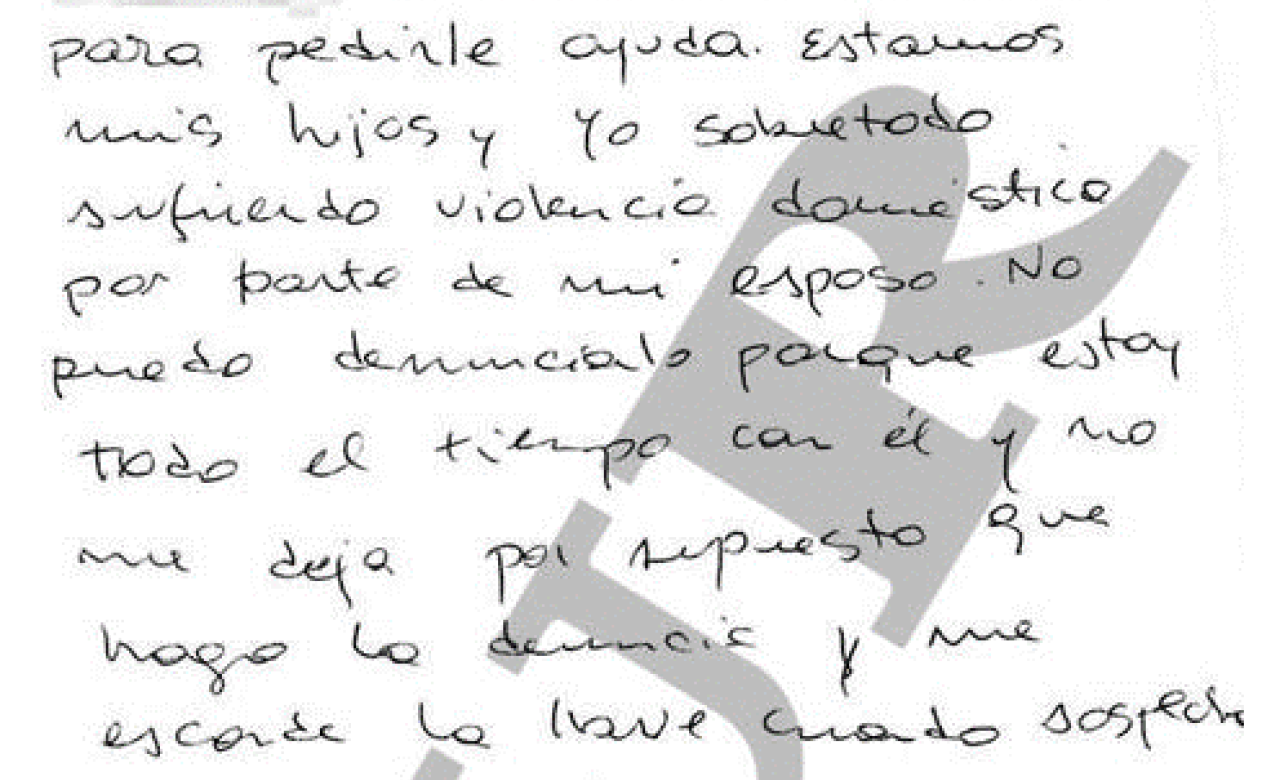 para pedirle ayuda. Estamos
mis hijos y yo sobretodo
sufriendo violencia doméstica
por parte de mi esposo. No
puedo denuncialo porque estoy
todo el tiempo con él y no
me deja por supuesto que
hago la denuncia y me
esconde la llave cuando sospecha